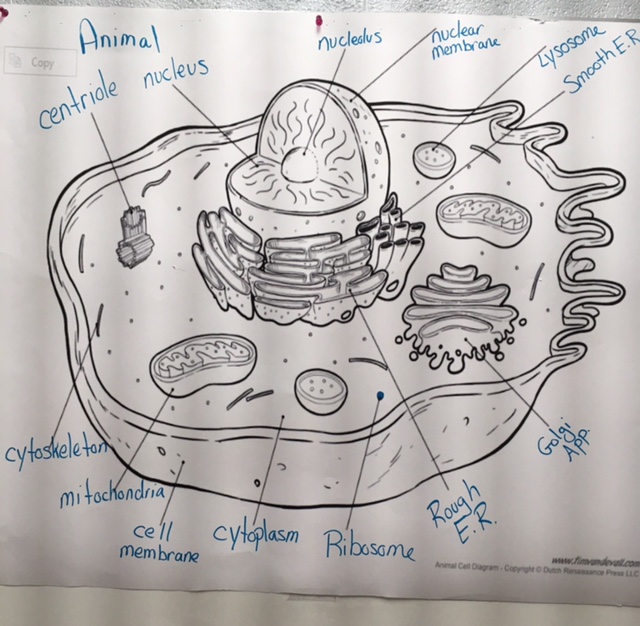 Animal
Copy
nucleolus
nuclear
membrane
Lysosome
Smooth E.R.
centriole
nucleus
cytoskeleton
mitochondria
cell
membrane
cytoplasm
Ribosome
Rough
E.R.
Golgi
App.
www.timvandevall.com
Animal Cell Diagram - Copyright © Dutch Renaissance Press LLC